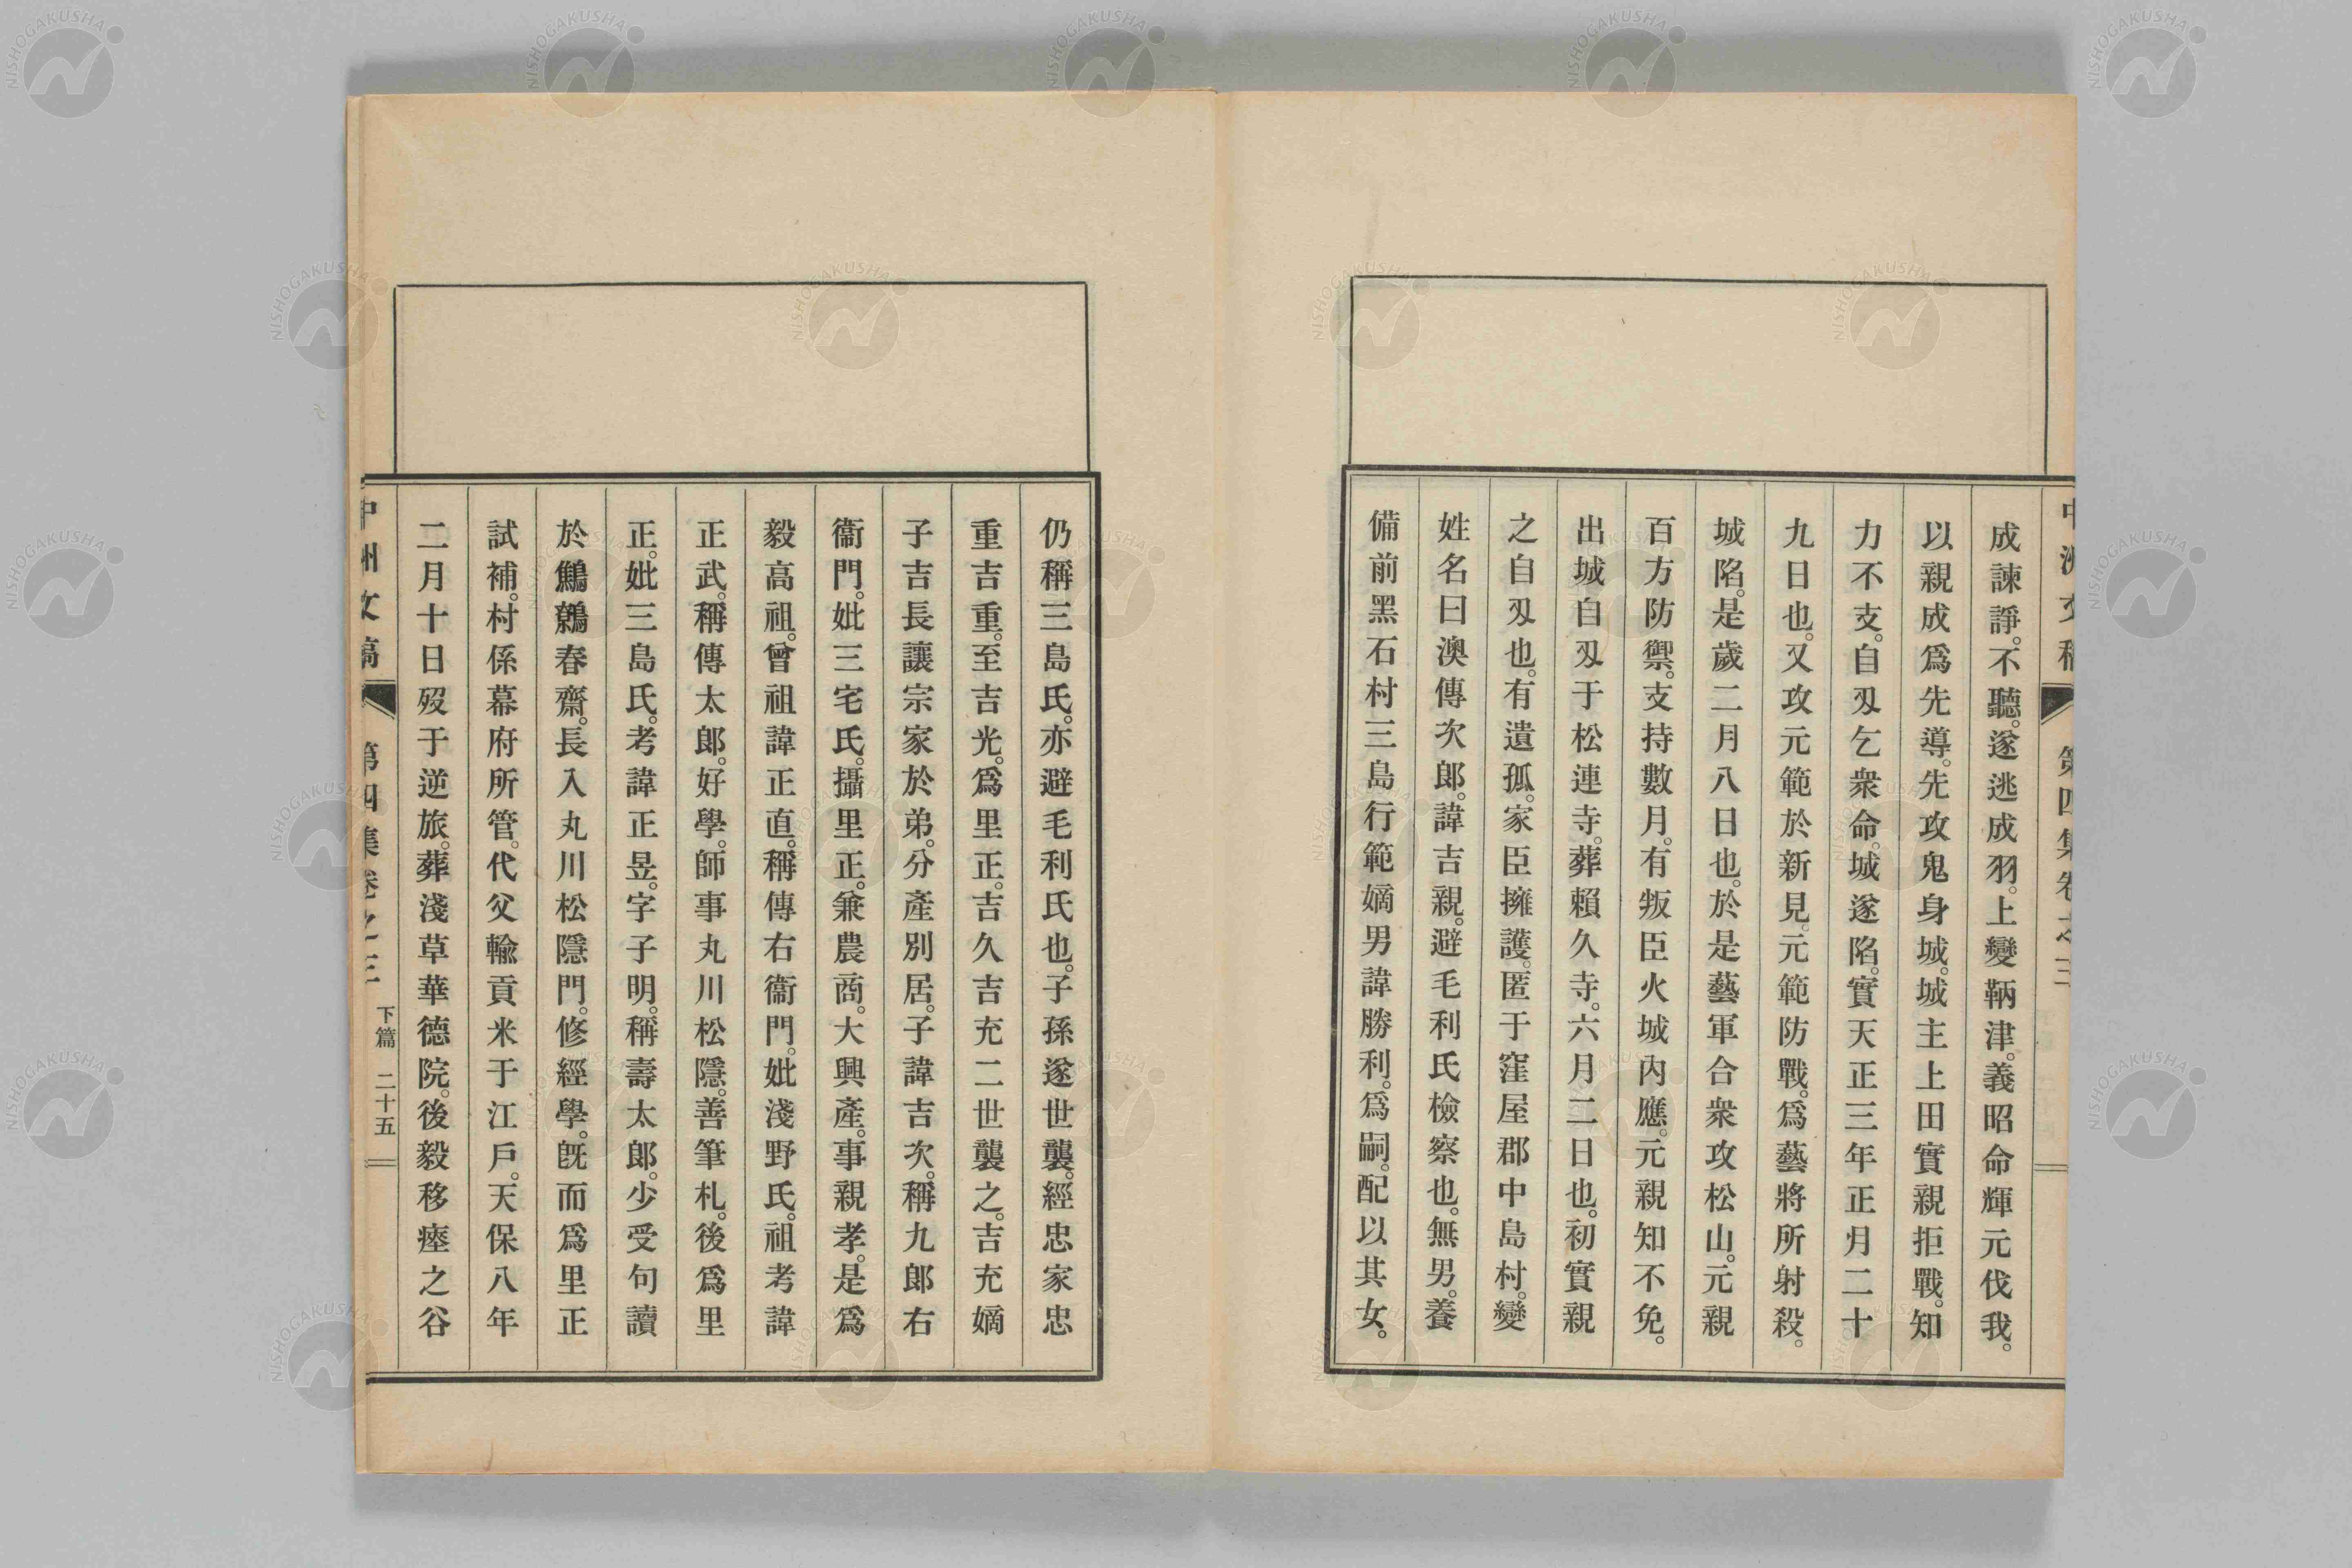 中洲文稿 第四集卷之三
成諫諍。不聽。遂逃成羽。上變鞆津。義昭命輝元伐我。
以親成爲先導。先攻鬼身城。城主上田實親拒戰。知
力不支。自刄乞衆命。城遂陷。實天正三年正月二十
九日也。又攻元範於新見。元範防戰。爲藝將所射殺。
城陷。是歲二月八日也。於是藝軍合衆攻松山。元親
百方防禦。支持數月。有叛臣火城內應。元親知不免。
出城自刄于松連寺。葬賴久寺。六月二日也。初實親
之自刄也。有遺孤。家臣擁護。匿于窪屋郡中島村。變
姓名曰澳傳次郎。諱吉親。避毛利氏檢察也。無男。養
備前黑石村三島行範嫡男諱勝利。爲嗣。配以其女。
仍稱三島氏。亦避毛利氏也。子孫遂世襲。經忠家忠
重吉吉重。至吉光。爲里正。吉久吉充二世襲之。吉充嫡
子吉長讓宗家於弟。分產別居。子諱吉次。稱九郎右
衞門。妣三宅氏。攝里正。兼農商。大興產。事親孝。是爲
毅高祖。曾祖諱正直。稱傳右衞門。妣淺野氏。祖考諱
正武。稱傳太郎。好學。師事丸川松隱。善筆札。後爲里
正。妣三島氏。考諱正昱。字子明。稱壽太郎。少受句讀
於鷦鷯春齋。長入丸川松隱門。修經學。旣而爲里正
試補。村係幕府所管。代父輸貢米于江戶。天保八年
二月十日歿于逆旅。葬淺草華德院。後毅移瘞之谷
中洲文稿 第四集卷之三 下篇 二十五
NISHOGAKUSHA